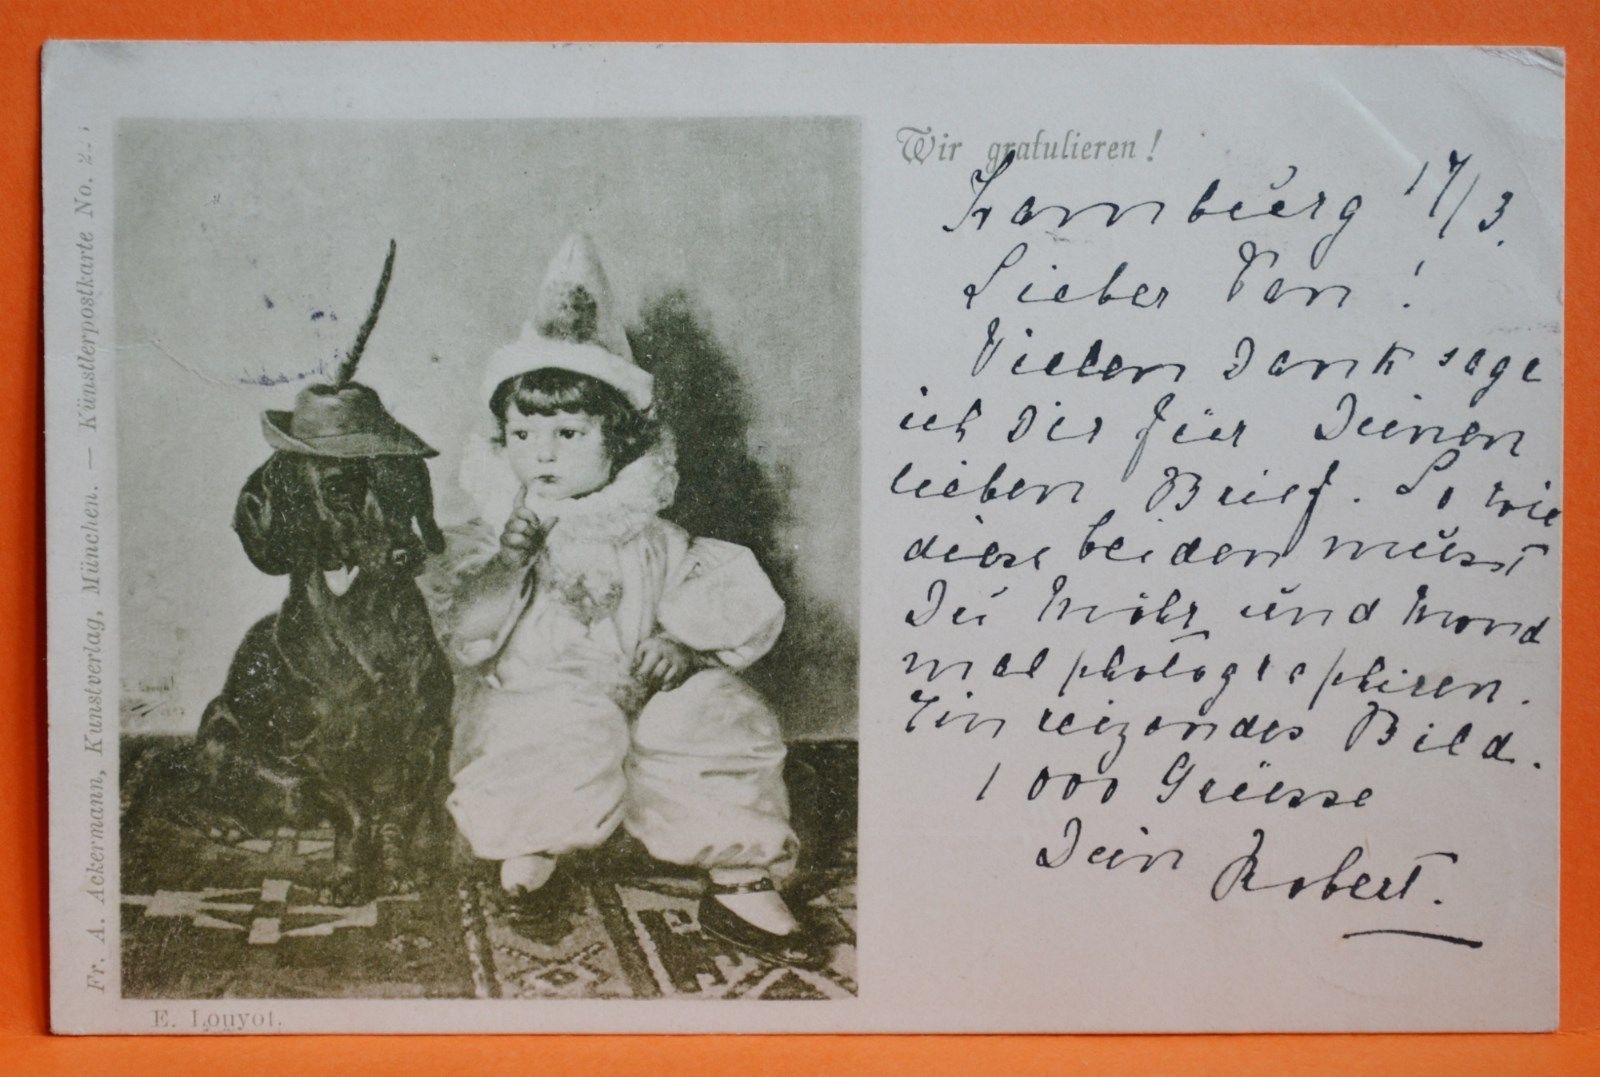 Fr. A. Ackermann, Kunstverlag, München. — Künstlerpostkarte No.
E. Louyot.
Wir gratulieren!
Hamburg 17/3.
Lieber !
Vielen Dank sage
ich Dir für Deinen
lieben Brief. So wie
diese beiden müsst
Du und
mal photographiren.
Ein reizendes Bild.
1000 Grüsse
Dein Robert.